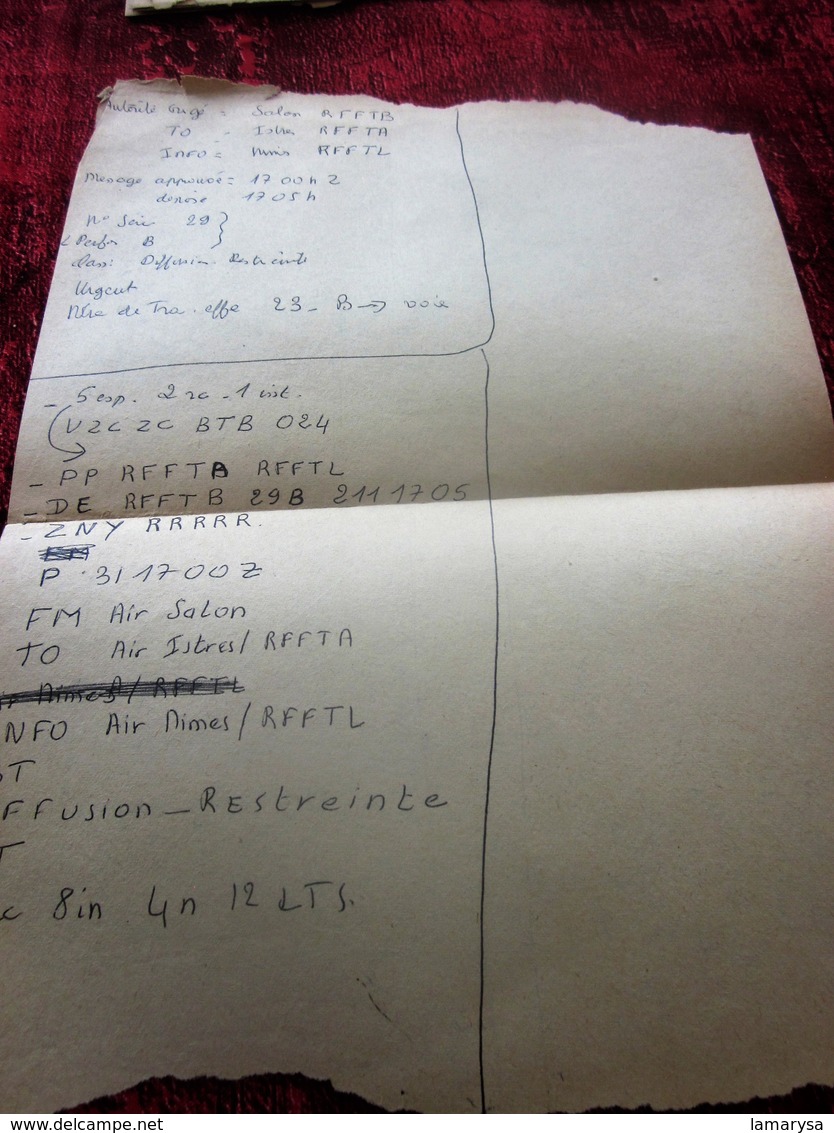 Autorité Orig = Salon RFFTB
TO = Istres RFFTA
INFO = Nimes RFFTL
Message approuvé = 1700h Z
1705h
N° Série 29 }
B
Class: Diffusion Restreinte
Urgent
de Tra. effe 23_ B → voie
_ 5 esp. 2 rc _ 1 inst.
VZCZC BTB 024
_ PP RFFTA RFFTL
_ DE RFFTB 29B 2111705
_ ZNY RRRRR.
P 311700Z
FM Air Salon
TO Air Istres/RFFTA
Nimes/RFFTL
NFO Air Nimes/RFFTL
BT
FFusion_REstreinte
T
c 8in 4n 12 LTS.
www.delcampe.net
lamarysa